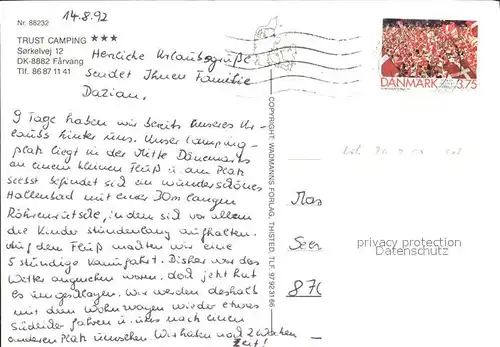 Nr. 88232
14.8.92
TRUST CAMPING ★★★
Sørkelvej 12
DK-8882 Fårvang
Tlf. 86 87 11 41
Herzliche Urlaubsgrüße
sendet Ihnen Familie
Dazian.
9 Tage haben wir bereits unseres Ur-
laubs hinter uns. Unser Camping-
platz liegt in der Mitte Dänemarks
an einem kleinen Fluß u. am Platz
selbst befindet sich ein wunderschönes
Hallenbad mit einer 30m langen
Röhrenrutsche, in dem sich vor allem
die Kinder stundenlang aufhalten.
Auf dem Fluß machten wir eine
5 stündige Kanufahrt. Bisher war das
Wetter angenehm warm, doch jetzt hat
es umgeschlagen. Wir werden deshalb
mit dem Wohnwagen wieder etwas
südlicher fahren u. uns nach einem
anderen Platz umsehen. Wir haben noch 2 Wochen
Zeit!
COPYRIGHT WADMANNS FORLAG, THISTED, TLF. 97 92 31 66
DANMARK 3.75
privacy protection
oldthing.com